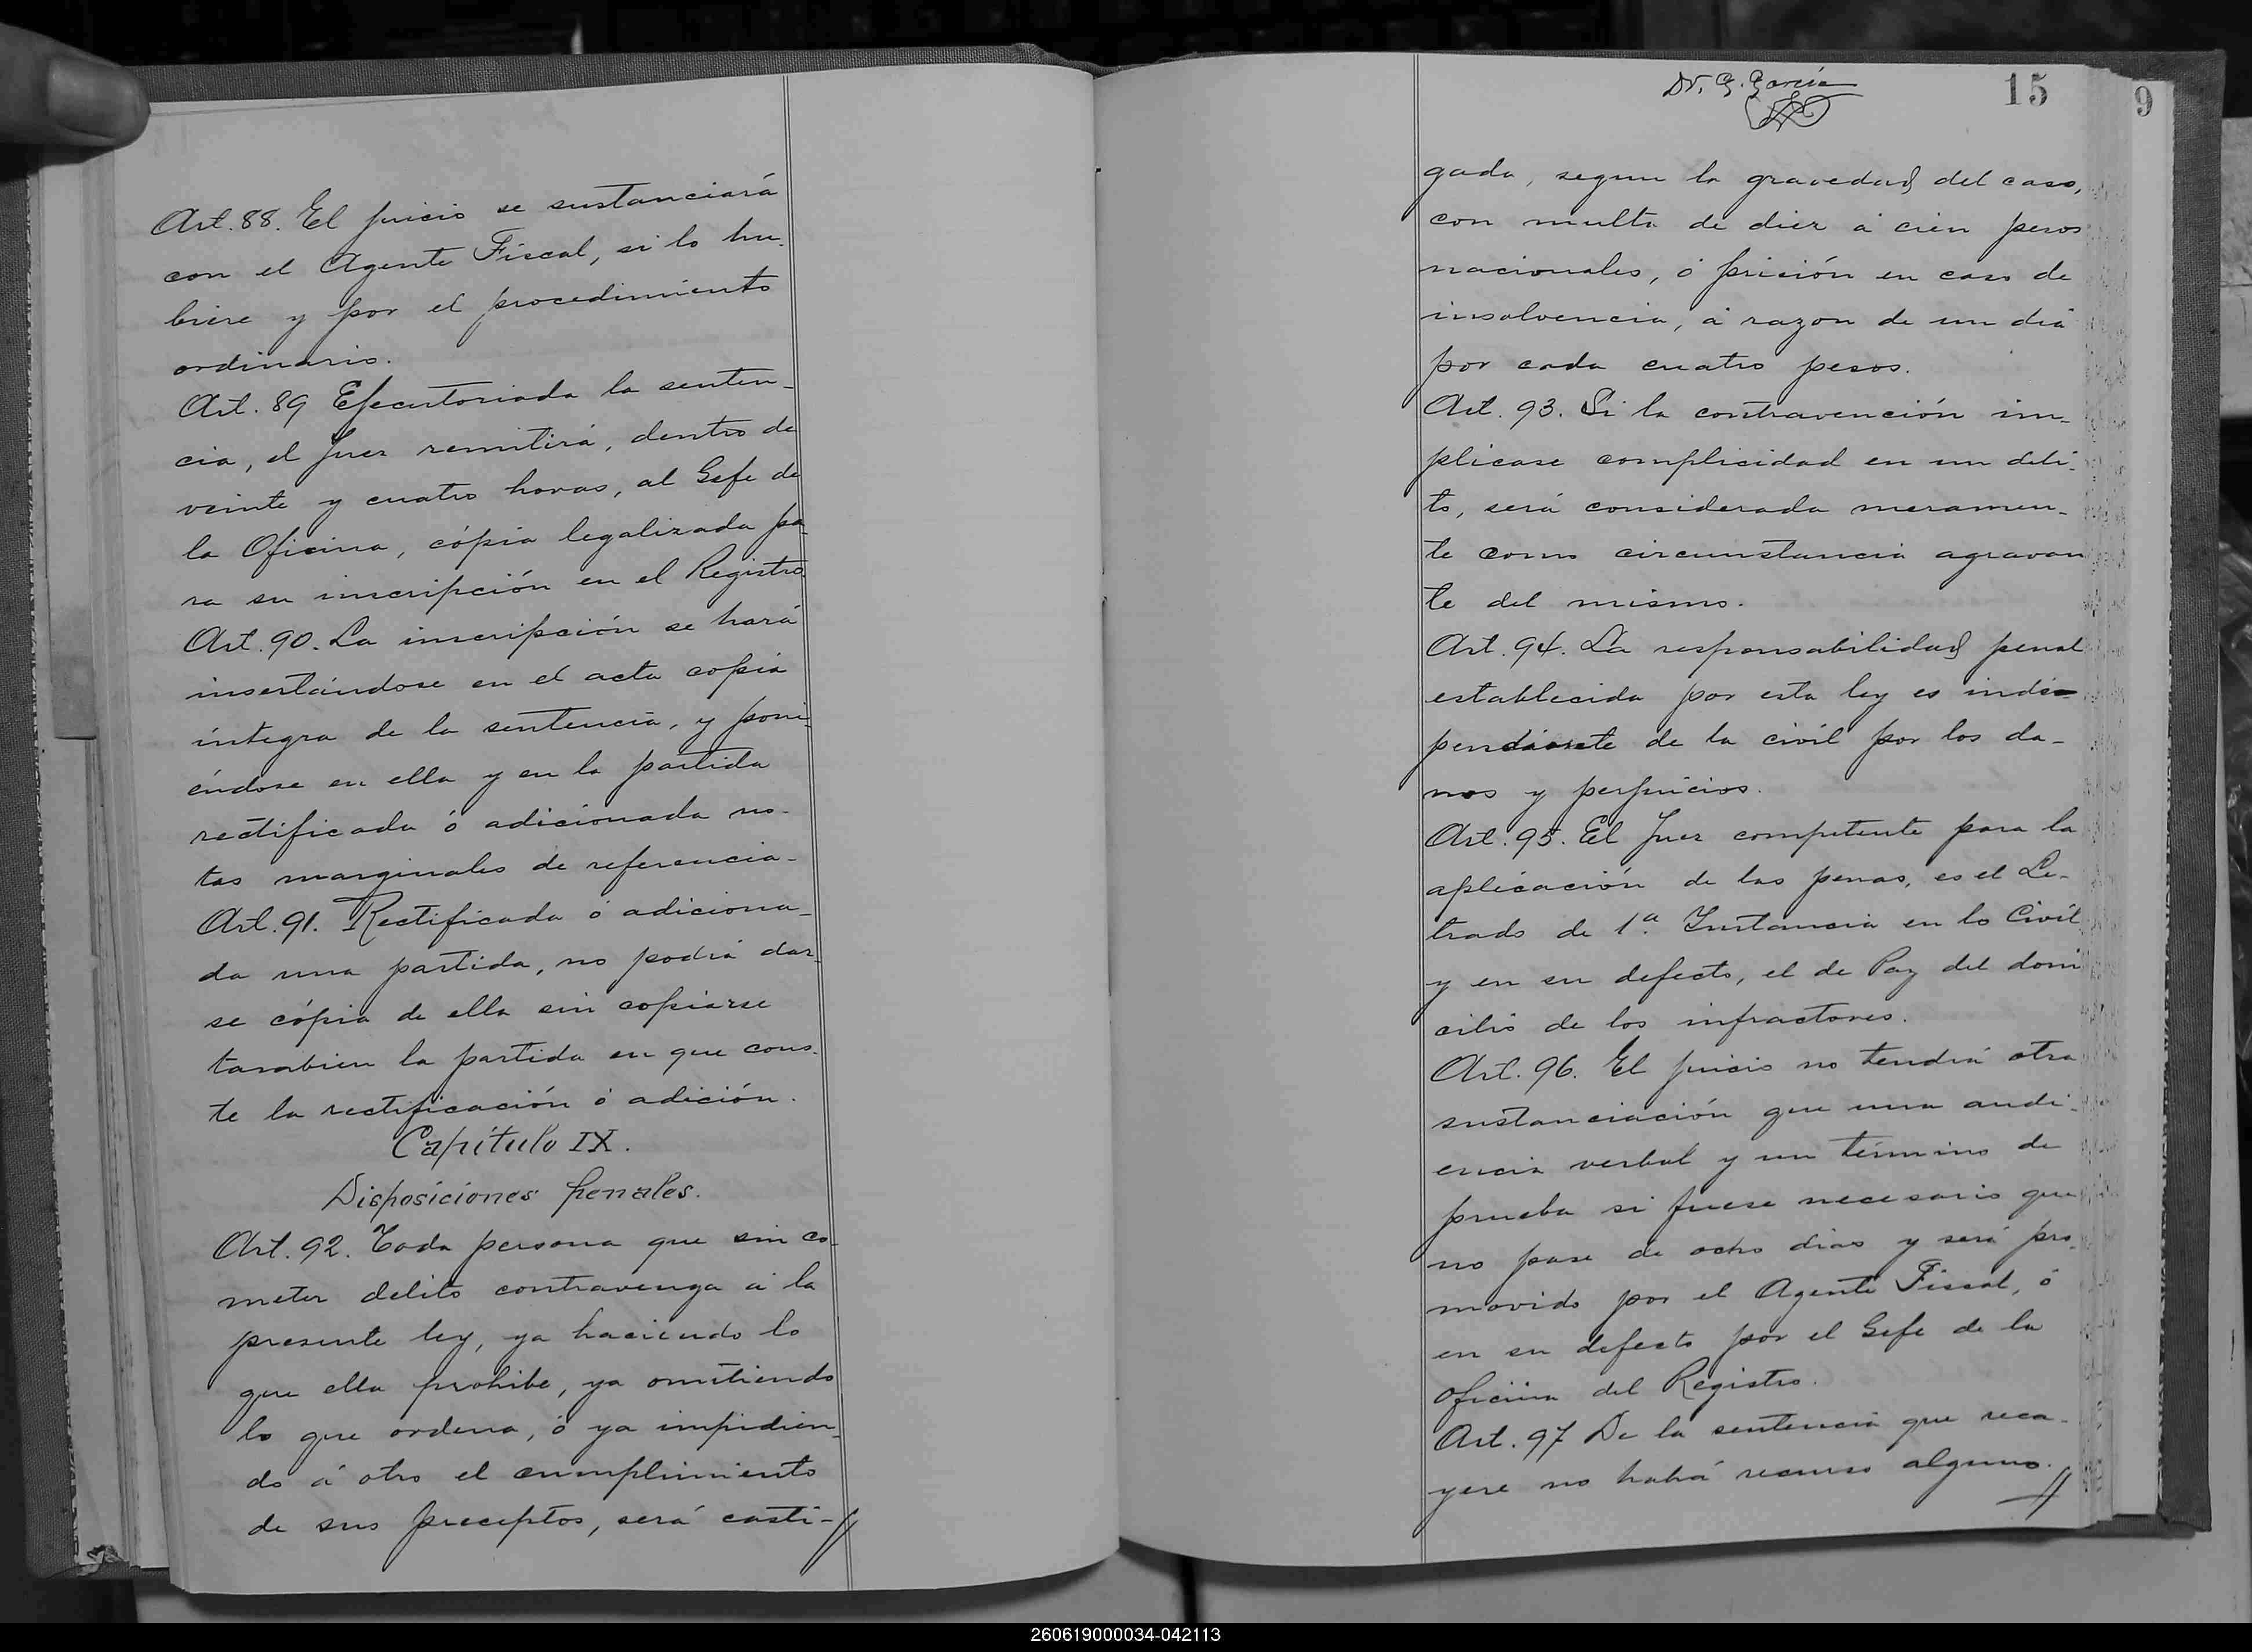 Art. 88. El juicio se sustanciará
con el Agente Fiscal, si lo hu-
biere y por el procedimiento
ordinario.
Art. 89 Ejecutoriada la senten-
cia, el Juez remitirá, dentro de
veinte y cuatro horas, al Gefe de
la Oficina, cópia legalizada pa-
ra su inscripción en el Registro.
Art. 90. La inscripción se hará
insertándose en el acta copia
íntegra de la sentencia, y poni-
éndose en ella y en la partida
rectificada ó adicionada no-
tas marginales de referencia.
Art. 91. Rectificada ó adiciona-
da una partida, no podrá dar-
se cópia de ella sin copiarse
tambien la partida en que cons-
te la rectificación ó adición.
Capítulo IX.
Disposiciones penales.
Art. 92. Toda persona que sin co-
meter delito contravenga á la
presente ley, ya haciendo lo
que ella prohibe, ya omitiendo
lo que ordena, ó ya impidien-
do á otro el cumplimiento
de sus preceptos, será casti-//
Dr. G. García
15
9
gada, segun la gravedad del caso,
con multa de diez á cien pesos
nacionales, ó prisión en caso de
insolvencia, á razon de un dia
por cada cuatro pesos.
Art. 93. Si la contravención im-
plicase complicidad en un deli-
to, será considerada meramen-
te como circunstancia agravan
te del mismo.
Art. 94. La responsabilidad penal
establecida por esta ley es inde-
pendiente de la civil por los da-
nos y perjuicios.
Art. 95. El Juez competente para la
aplicación de las penas, es el Le-
trado de 1ª. Instancia en lo Civil
y en su defecto, el de Paz del domi
cilio de los infractores.
Art. 96. El juicio no tendrá otra
sustanciación que una audi-
encia verbal y un término de
prueba si fuese necesario que
no pase de ocho dias y será pro-
movido por el Agente Fiscal, ó
en su defecto por el Gefe de la
Oficina del Registro.
Art. 97 De la sentencia que reca-
yere no habrá recurso alguno.
//
260619000034-042113